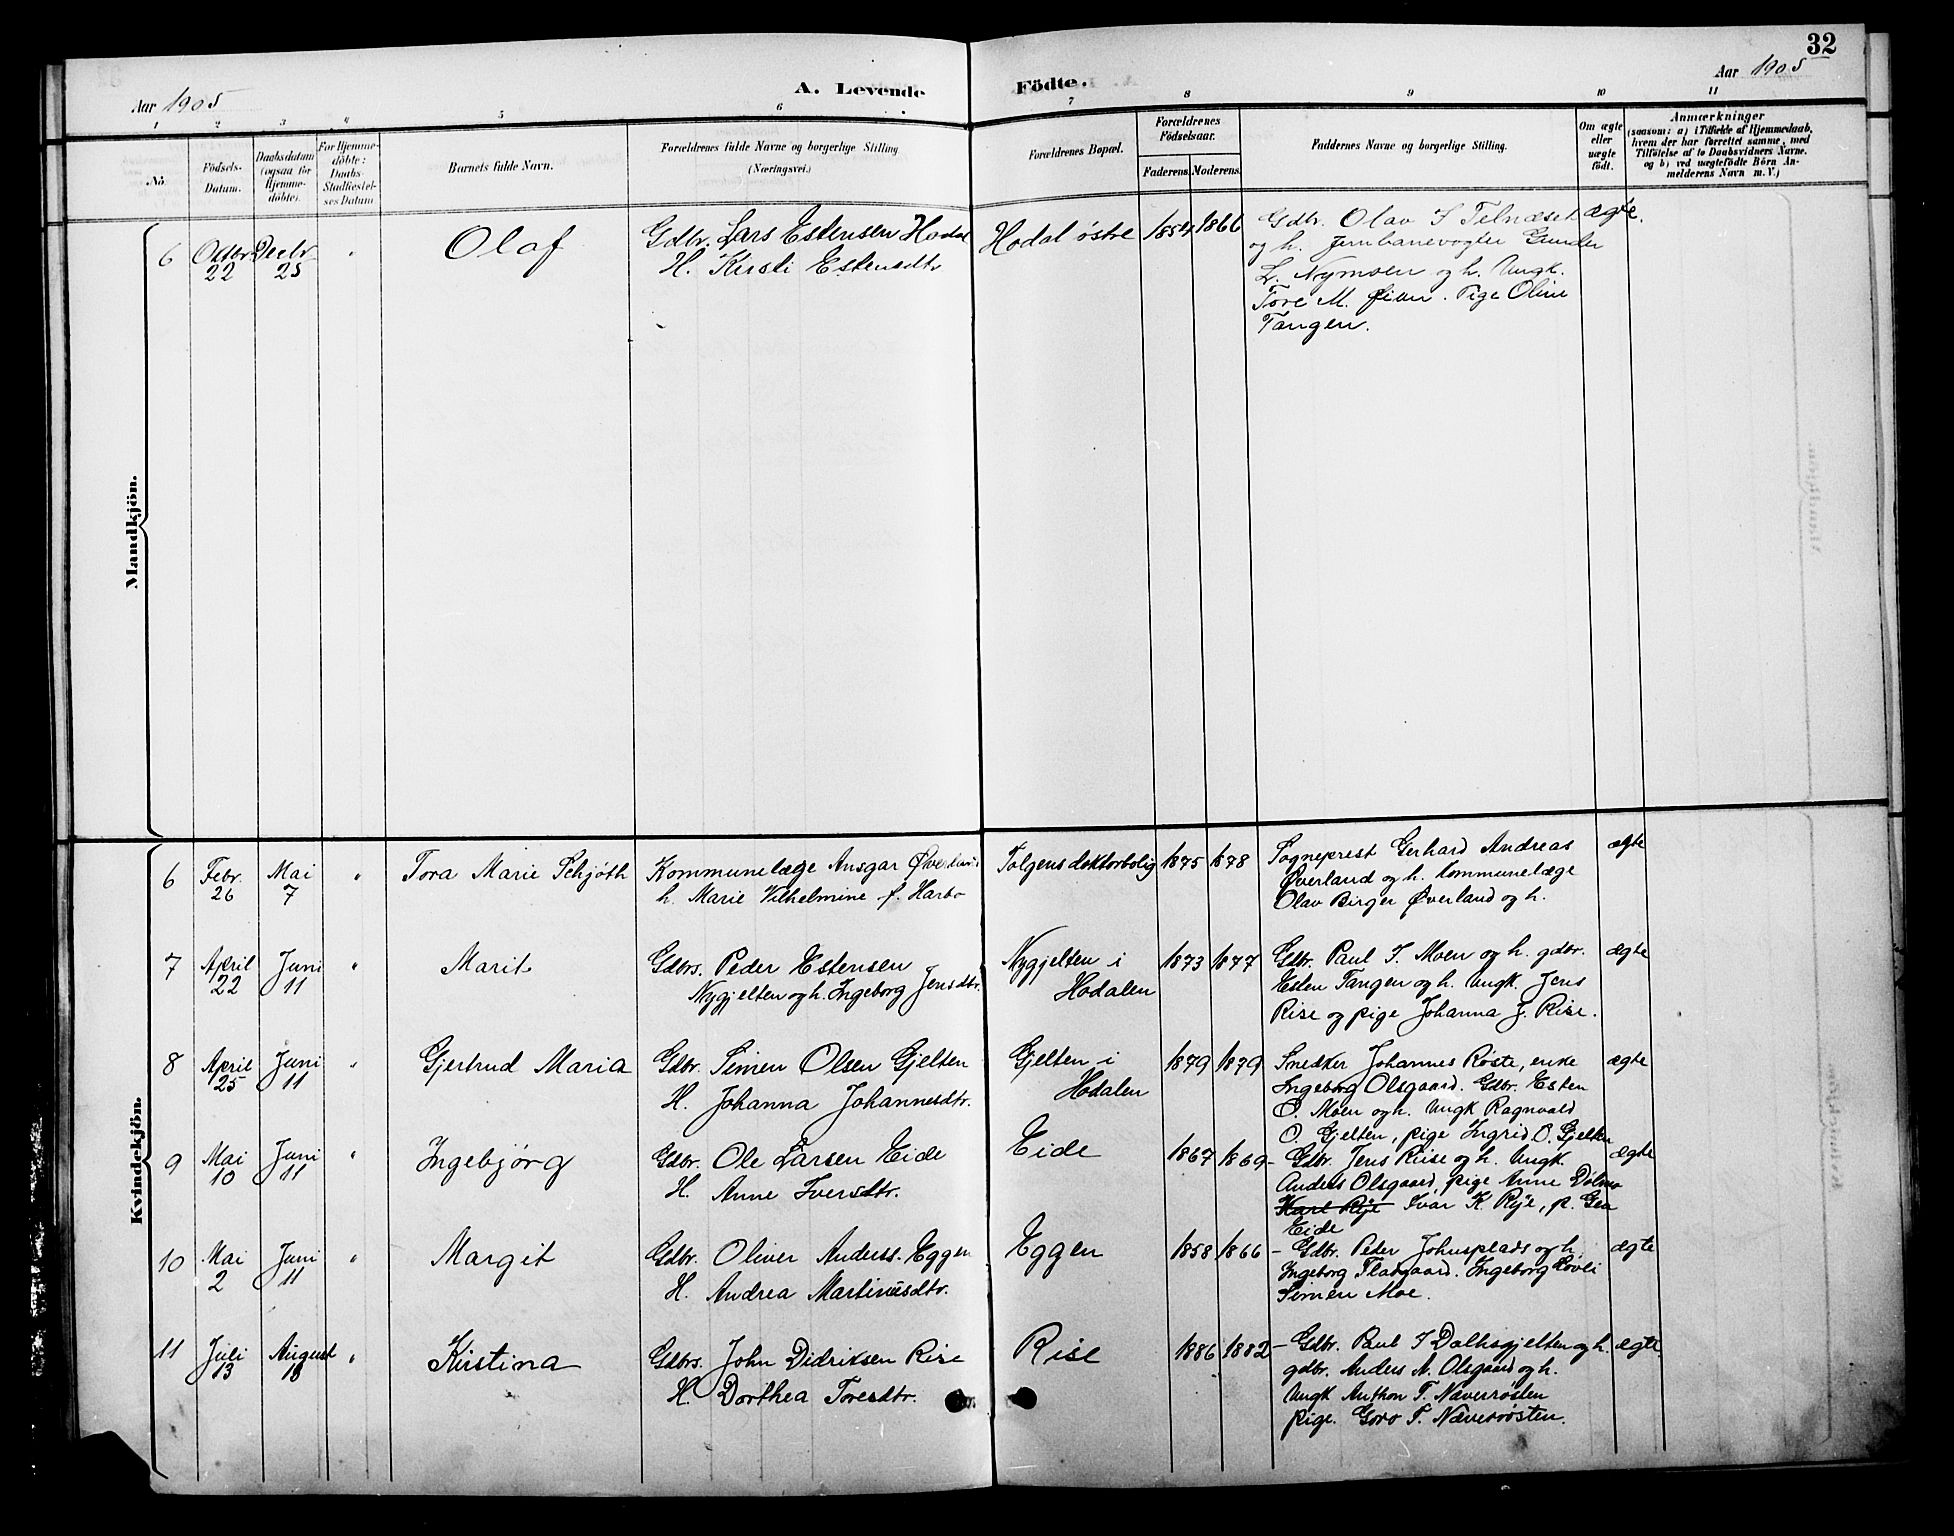 32
Aar 1905
A. Levende Födte.
Aar 1905
1 2 3 4 5 6 7 8 9 10 11
No.
Födsels-Datum.
Daabsdatum (ogsaa for Hjemme-döbte).
For Hjemme-döbte: Daabs-Stadfæstel-ses Datum
Barnets fulde Navn.
Forældrenes fulde Navne og borgerlige Stilling (Næringsvei.)
Forældrenes Bopæl.
Forældrenes Födselsaar.
Faderens. Moderens.
Faddernes Navne og borgerlige Stilling.
Om ægte eller uægte födt.
Anmærkninger
(saasom: a) i Tilfælde af Hjemmedaab, hvem der har forrettet samme, med Tilföielse af to Daabsvidners Navne. og b) ved uægtefödte Börn An-melderens Navn m. V.)
Mandkjön.
6 Oktbr. 22 Decbr. 25 " Olaf
Gdbr. Lars Estensen Hodal
H. Kirsti Estensdtr
Hodal østre 1854 1866
Gdbr. Olav J Telnæset
og h. Jernbanevogter Gunder
L. Nymoen og h. Ungk.
Tore M. Øien. Pige Oline
Tangen.
ægte.
Kvindekjön.
6 Febr. 26 Mai 7 " Tora Marie Schjøth
Kommunelæge Ansgar Øverland
h. Marie Vilhelmine f. Harbo
Tolgens doktorbolig 1875 1878
Sogneprest Gerhard Andreas
Øverland og h. kommunelæge
Olav Birger Øverland og h.
ægte
7 April 22 Juni 11 " Marit
Gdbrs. Peder Estensen
Nygjelten og h. Ingeborg Jensdtr.
Nygjelten i
Hodalen
1873 1877
Gdbr. Paul J. Moen og h. gdbr.
Esten Tangen og h. Ungk. Jens
Rise og pige Johanna J. Rise.
ægte
8 April 25 Juni 11 " Gjertrud Maria
Gdbr. Simen Olsen Gjelten
H. Johanna Johannesdtr.
Gjelten i
Hodalen
1879 1879
Snedker Johannes Røste, enke
Ingeborg Olsgaard. Gdbr. Esten
O. Moen og h. Ungk Ragnvald
O. Gjelten, pige Ingrid O. Gjelten
ægte
9 Mai 10 Juni 11 " Ingebjørg
Gdbr. Ole Larsen Eide
H. Anne Iversdtr.
Eide 1867 1869
- Gdbr. Jens Riise og h. Ungk.
Anders Olsgaard, pige Anne Dølmo
Karl Rye Ivar K. Rye, p. Gea
Eide
ægte
10 Mai 2 Juni 11 " Margit
Gdbr. Oliver Anders. Eggen
H. Andrea Martinusdtr.
Eggen 1858 1866
- Gdbr. Peder Johnsplads og h.
Ingeborg Fladgaard. Ingeborg Lovli
Simen Moe.
ægte
11 Juli 13 August 18 " Kristina
Gdbrs. John Didriksen Rise
H. Dorthea Toresdtr.
Rise 1886 1882
- Gdbr. Paul J Dalhsgjelten og h.
gdbr. Anders N. Olsgaard og h.
Ungk Anthon T. Næverrøsten
pige. Goro T. Næverrøsten.
ægte.